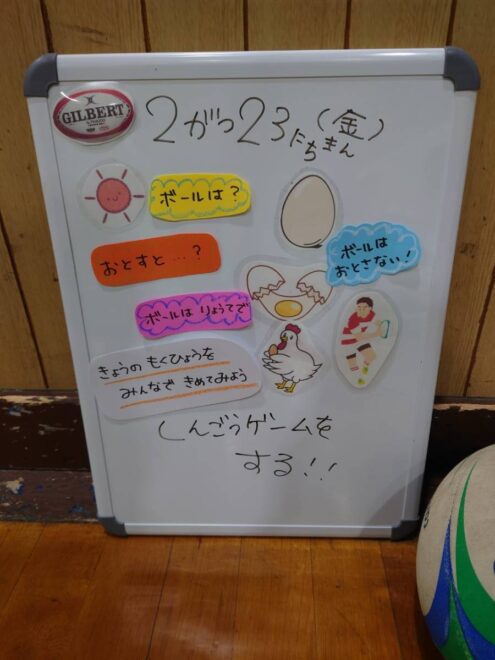 GILBERT
2がつ23にちきん(金)
ボールは?
おとすと…?
ボールは
おとさない!
ボールは りょうてで
きょうの もくひょうを
みんなで きめてみよう
しんごうゲームを
する!!